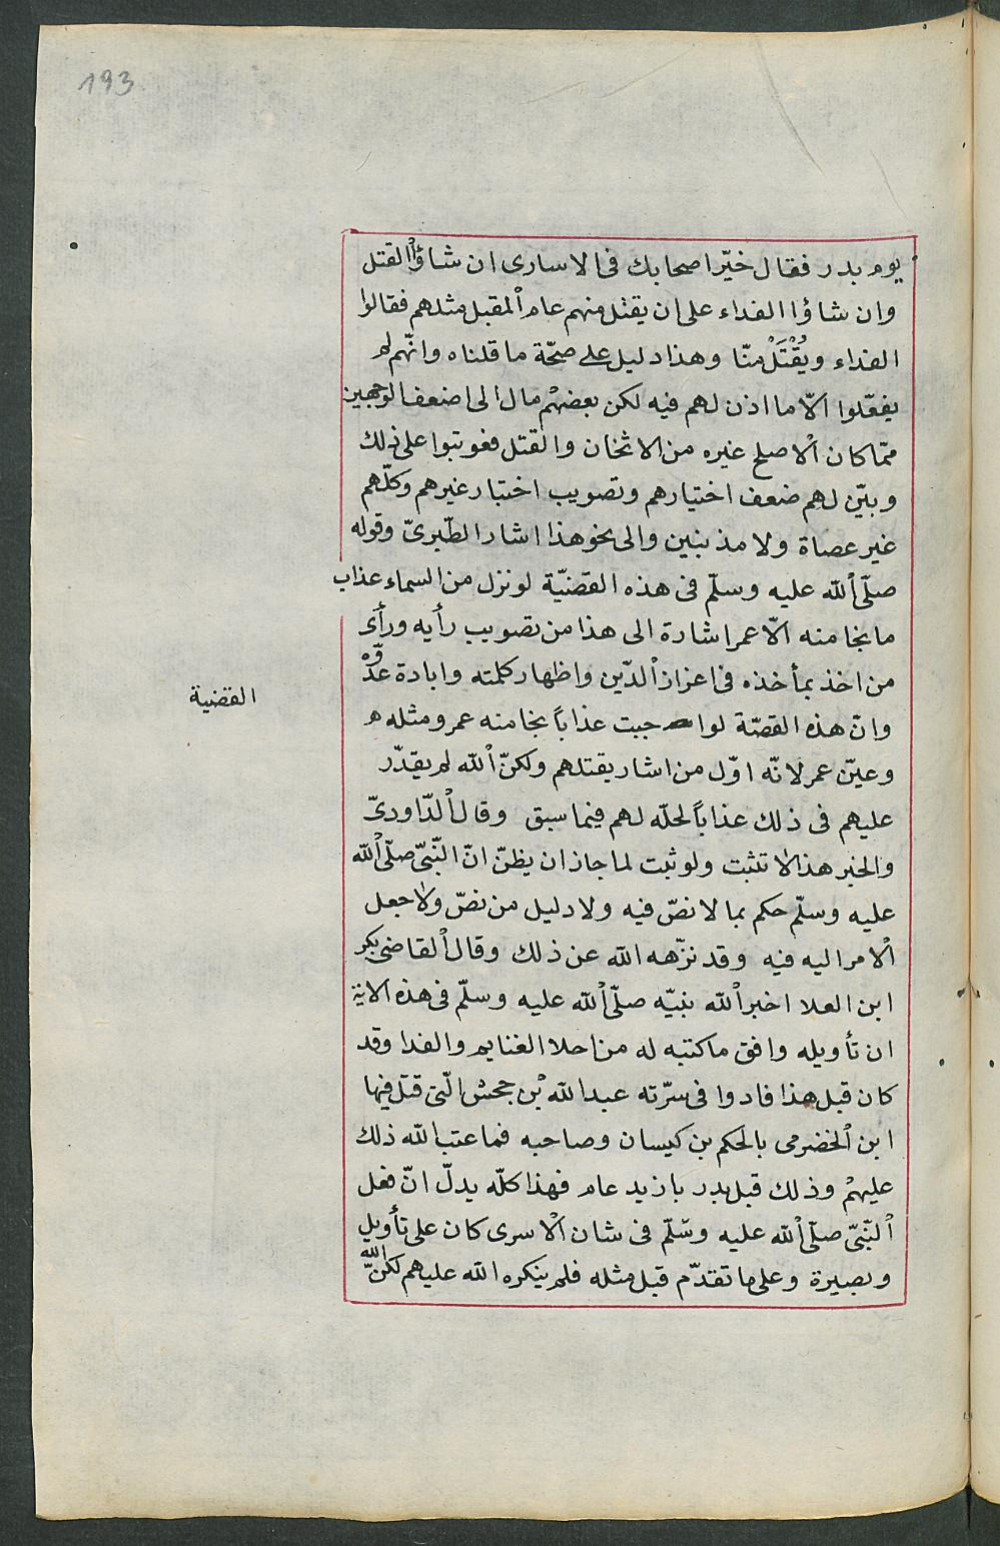 193
يوم بدر فقال خيّر اصحابك فى الاسارى ان شاؤا القتل
وان شاؤا الفداء على ان يقتل منهم عام المقبل مثلهم فقالوا
الفداء ويُقْتَلْ منّا وهذا دليل على صحّة ما قلناه وانّهم لم
يفعلوا الاّ ما اذن لهم فيه لكن بعضهم مال الى اضعف الوجهين
ممّا كان الاصلح غيره من الاثخان والقتل فعوتبوا على ذلك
وبيّن لهم ضعف اختيارهم وتصويب اختيار غيرهم وكلّهم
غير عصاة ولا مذنبين والى نحو هذا اشار الطّبرىّ وقوله
صلّى الله عليه وسلّم فى هذه القضيّة لو نزل من السماء عذاب
ما نجا منه الاّ عمر اشارة الى هذا من تصويب رأيه ورأى
من اخذ بمأخذه فى اعزاز الدّين واظهار كلمته وابادة عدوّه
القضية
وانّ هذه القصّة لو استوجبت عذاباً نجا منه عمر ومثله
وعيّن عمر لانّه اوّل من اشار بقتلهم ولكنّ الله لم يقدّر
عليهم فى ذلك عذاباً لحلّه لهم فيما سبق وقال الدّاودىّ
والخبر هذا لا تثبت ولو ثبت لما جاز ان يظنّ انّ النّبىّ صلّى الله
عليه وسلّم حكم بما لا نصّ فيه ولا دليل من نصّ ولا جعل
الامر اليه فيه وقد نزّهه الله عن ذلك وقال القاضى بكر
ابن العلا اخبر الله نبيّه صلّى الله عليه وسلّم فى هذه الاية
ان تأويله وافق ما كتبه له من احلا الغنايم والفدا وقد
كان قبل هذا فادوا فى سرّته عبد الله بن جحش الّتى قتل فيها
ابن الخضرمى بالحكم بن كيسان وصاحبه فما عتب الله ذلك
عليهم وذلك قبل بدر بازيد عام فهذا كلّه يدلّ انّ فعل
النّبىّ صلّى الله عليه وسلّم فى شان الاسرى كان على تأويل
وبصيرة وعلى ما تقدّم قبل مثله فلم ينكره الله عليهم لكنّ الله